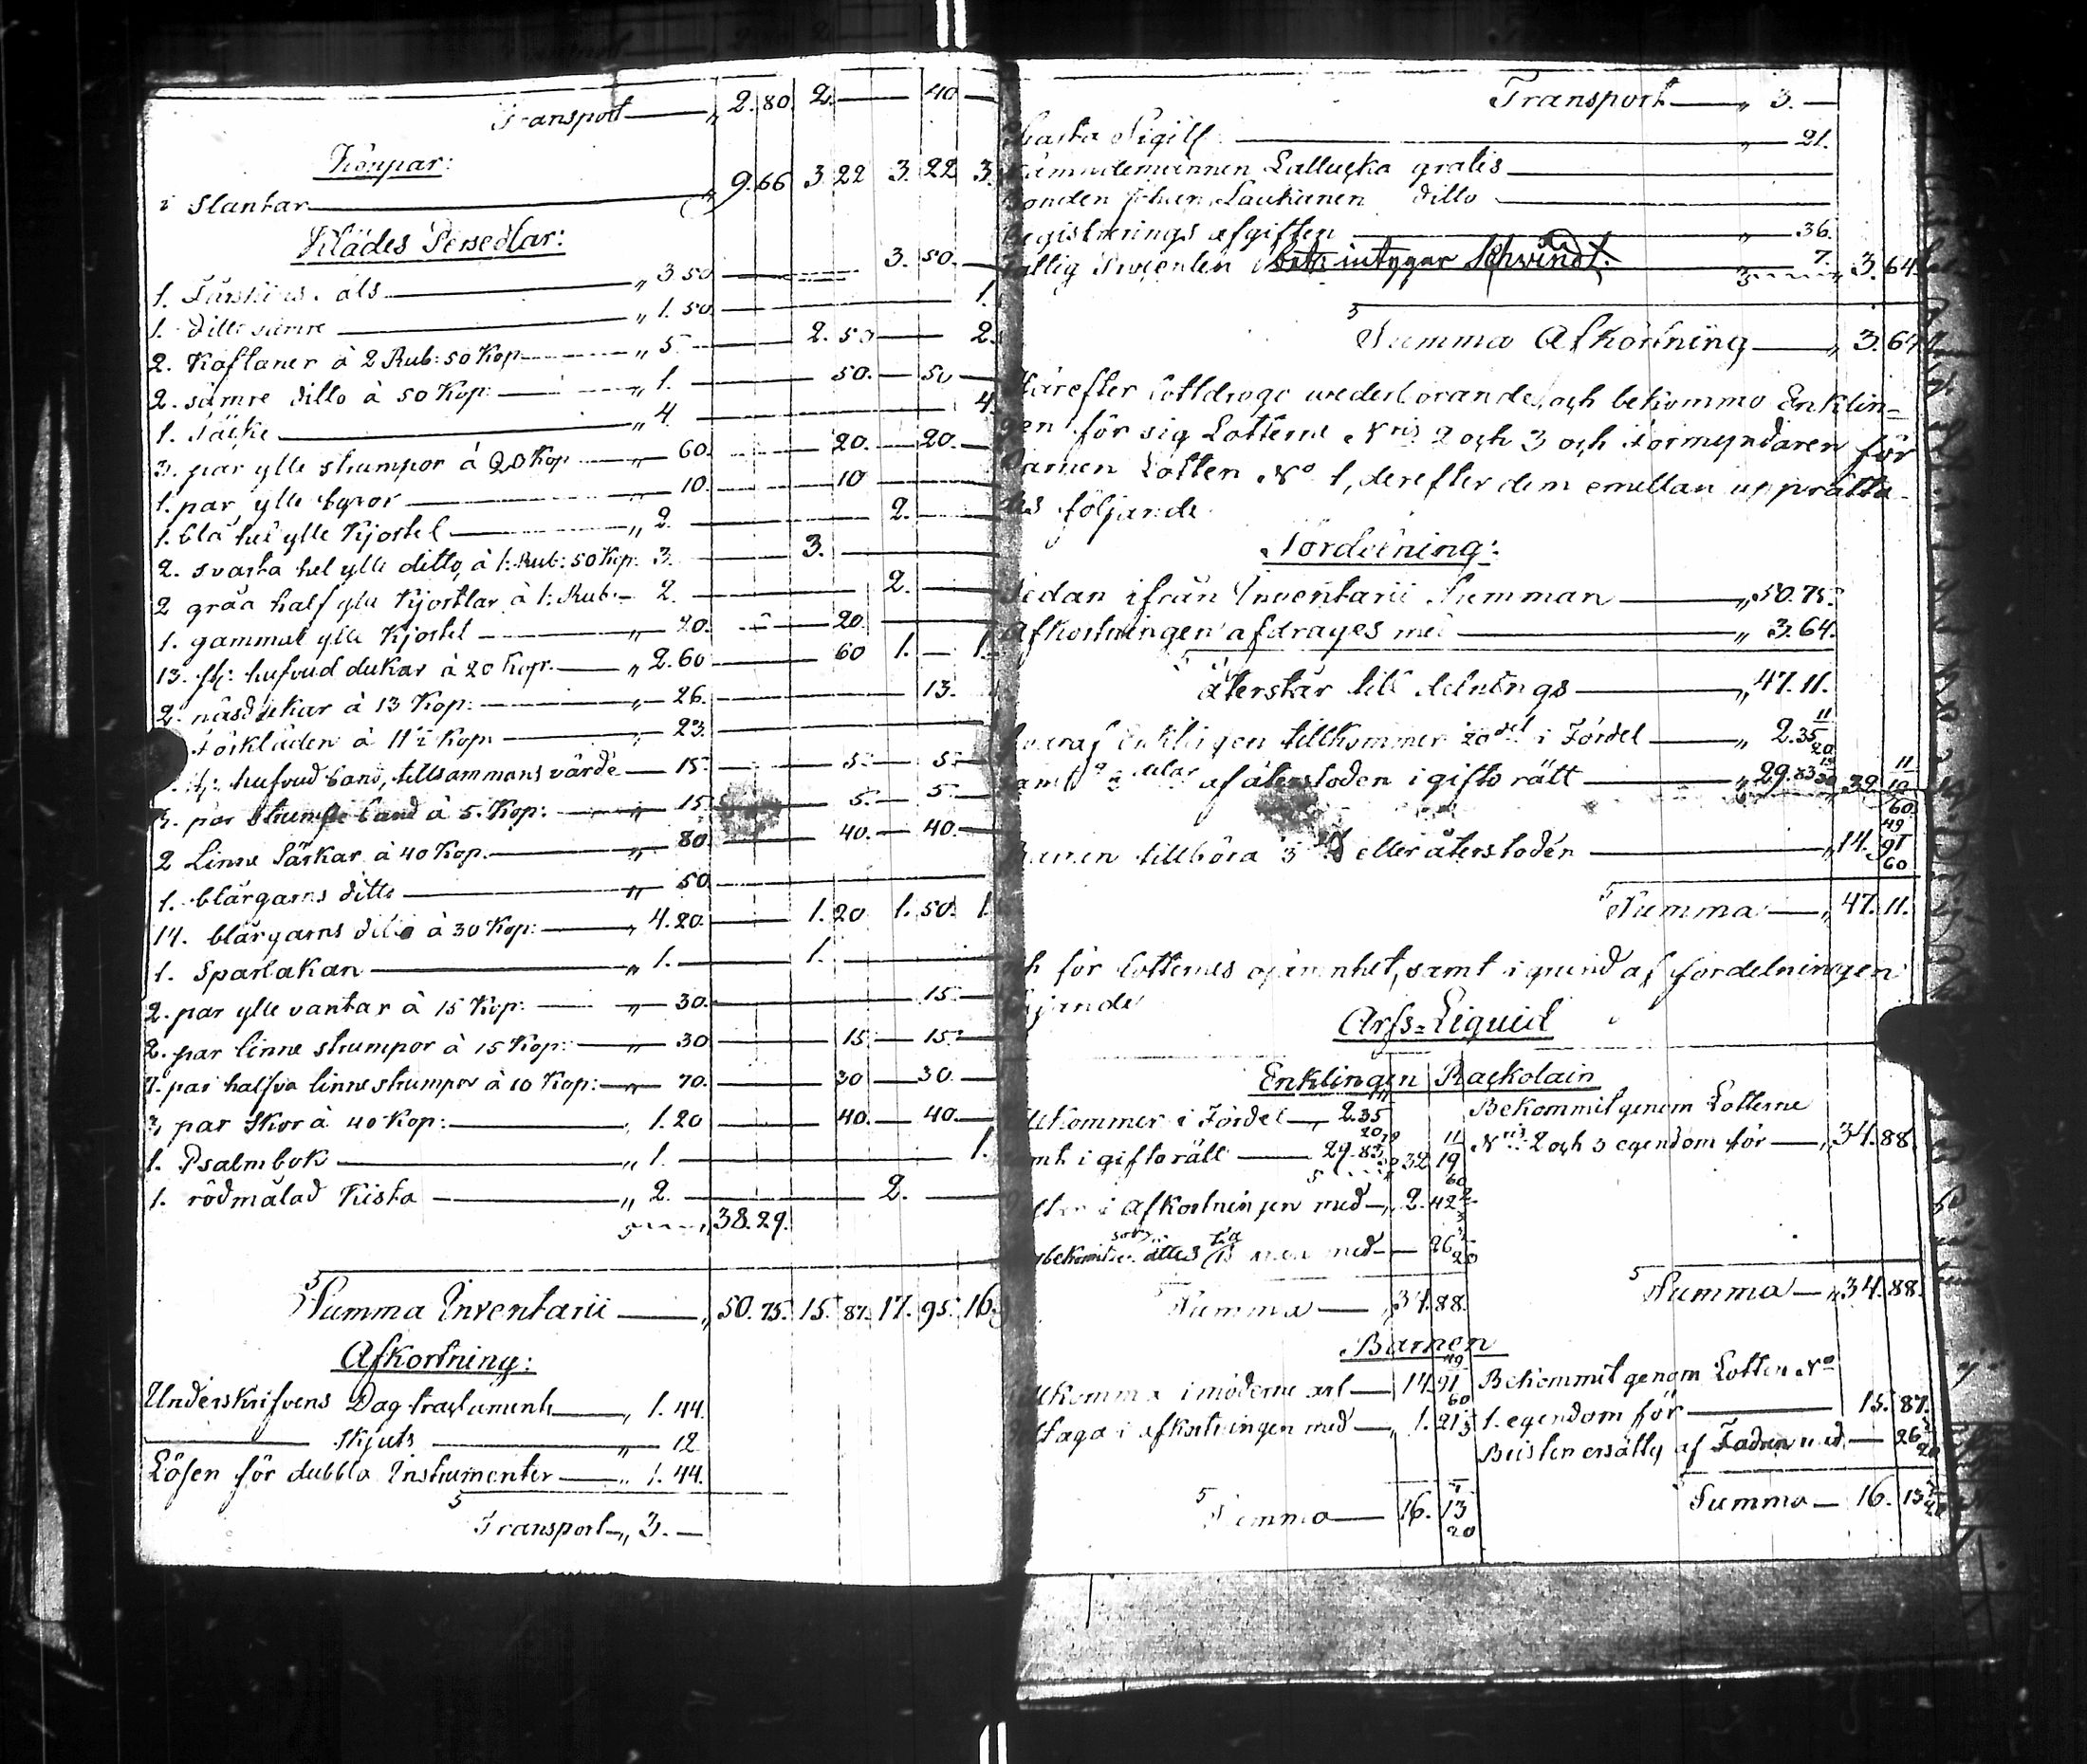 Transport — „ 2. 80. 2. — 40 —
Koppar:
i Slantar — „ 9. 66 3. 22 3. 22 3.
Klädes Persedlar:
1. — „ 3 50 — 3. 50. —
1. ditto sämre — „ 1. 50 — 1.
2. Kaftaner à 2 Rub: 50 Kop — „ 5 — 2. 50 — 2.
2. sämre ditto à 50 Kop: — „ 1. — 50. — 50 —
1. Täcke — „ 4 — 4.
3. par ylle strumpor à 20 Kop — „ 60. — 20. — 20. —
1. par ylle — „ 10. — 10 —
1. blå hel ylle Kjortel — „ 2. — 2. —
2. svarta hel ylle ditto, à 1: Rub: 50 Kop: 3. — 3. —
2 gråa half ylle Kjortlar à 1: Rub: — 2. — 2. —
1. gammal ylle Kjortel — „ 20. — 20. —
13. st: hufvud dukar à 20 Kop. — „ 2. 60 — 60 1. — 1.
2. näsdukar à 13 Kop: — „ 26. — 13.
förkläden à 11½ Kop: — „ 23. —
st: hufvud band, tillsammans värde — 15. — 5. — 5. —
3. par strumpe band à 5. Kop: — „ 15. — 5. — 5. —
2 Linne Särkar à 40 Kop. — „ 80. — 40. — 40. —
1. blårgarns ditto — „ 50 —
14. blårgarns ditto à 30 Kop: — „ 4. 20. — 1. 20 1. 50. 1.
1. Sparlakan — „ 1. — 1. —
2. par ylle vantar à 15 Kop: — „ 30. — 15. —
2. par linne strumpor à 15 Kop: — „ 30 — 15. — 15. —
7. par halfva linne strumpor à 10 Kop: — „ 70. — 30 — 30. —
3. par Skor à 40 Kop: — „ 1. 20 — 40. — 40. —
1. Psalmbok — „ 1. — 1.
1. rödmålad Kista — „ 2. — 2. —
38. 29.
Summa Inventarii — „ 50. 75. 15. 87. 17. 95. 16.
Afkortning:
Underskrifvens Dag tractamente — „ 1. 44.
— Skjuts — „ 12
Lösen för dubbla Instrumenter — „ 1. 44.
Transport — „ 3. —
Transport — „ 3. —
Charta Sigill. — „ 21.
Nämndemannen Lallucka gratis —
Bonden Johan Laukianen ditto —
Registrerings afgiften — „ 36.
fattig Procenten intygar Schvindt. — 7. „ 3. 64.
Summa Afkortning — „ 3. 64
Härefter lottdrogo wederborande, och bekommo Enklin=
gen för sig Lotterne Nris 2 och 3 och Formyndaren för
Barnen Lotten No 1, derefter dem emellan upprätta
des följande
Fördelning:
Sedan ifrån Inventarii Summan — „ 50. 75.
Afkortningen afdrages med — „ 3. 64.
återstår till delnings — „ 47. 11.
hvaraf Enklingen tillkommer 20del i Fördel — „ 2. 35 11/20
samt 2/3 delar af återstoden i gifto rätt — „ 29. 83 — 32. 19 11/60
Barnen tillhöra eller återstoden — „ 14. 91 49/60
Summa — „ 47. 11.
och för lotternes ojämnhet, samt i grund af fördelningen
följande
Arfs=Liquid
Enklingen Rackolain
tilkommer i Fördel — „ 2. 35 11/20
samt i giftorätt — 29. 83 32 19 11/60
i afkortningen med — „ 2. 42 2/3
med — 26 3/20
Summa — „ 34. 88.
Bekommit genom Lotterne
Nris 2 och 3 egendom för — „ 34. 88
Summa — „ 34. 88.
Barnen
tilkomma i möderne arf — 14. 91 49/60
deltaga i afkortningen med — „ 1. 21 1/3
Summa — 16. 13 3/20
Bekommit genom Lotten No
1. egendom för — 15. 87.
Bristen ersättes af Fadren med — 26 3/20
Summa — 16. 13 3/20